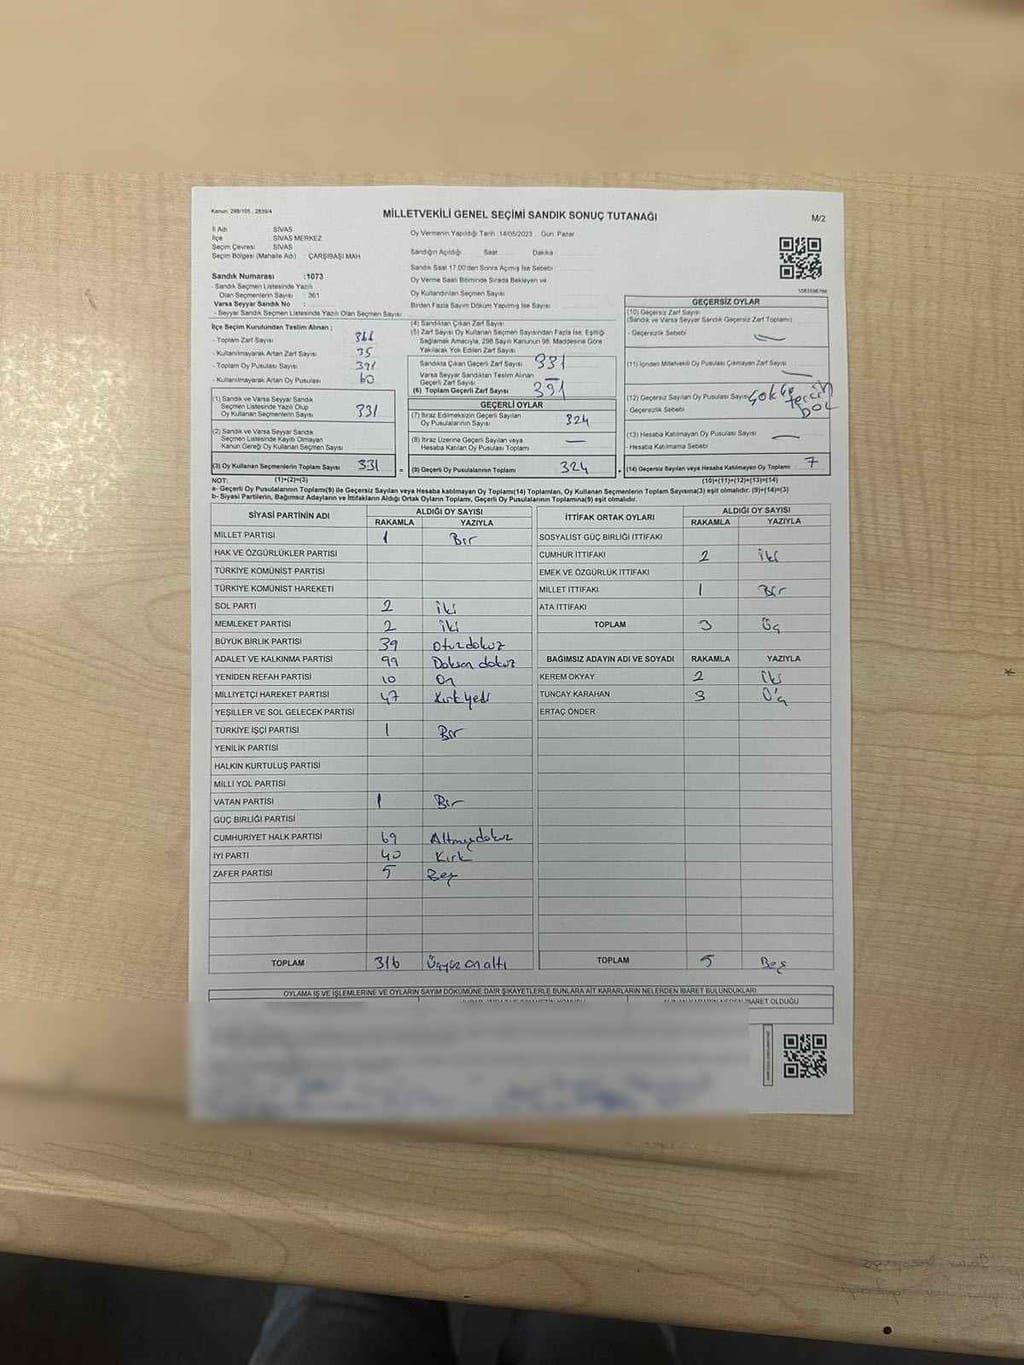 Kanun: 298/105 ; 2839/4
MİLLETVEKİLİ GENEL SEÇİMİ SANDIK SONUÇ TUTANAĞI
M/2
İl Adı : SİVAS
İlçe : SİVAS MERKEZ
Seçim Çevresi : SİVAS
Seçim Bölgesi (Mahalle Adı) : ÇARŞIBAŞI MAH
Sandık Numarası :1073
- Sandık Seçmen Listesinde Yazılı
Olan Seçmenlerin Sayısı : 361
Varsa Seyyar Sandık No :
- Seyyar Sandık Seçmen Listesinde Yazılı Olan Seçmen Sayısı
Oy Vermenin Yapıldığı Tarih :14/05/2023 Gün: Pazar
Sandığın Açıldığı Saat Dakika
Sandık Saat 17.00'den Sonra Açılmış İse Sebebi
Oy Verme Saati Bitiminde Sırada Bekleyen ve
Oy Kullandırılan Seçmen Sayısı
Birden Fazla Sayım Döküm Yapılmış İse Sayısı
İlçe Seçim Kurulundan Teslim Alınan ;
- Toplam Zarf Sayısı 366
- Kullanılmayarak Artan Zarf Sayısı 35
- Toplam Oy Pusulası 391
- Kullanılmayarak Artan Oy Pusulası 60
(1) Sandık ve Varsa Seyyar Sandık
Seçmen Listesinde Yazılı Olup
Oy Kullanan Seçmenlerin Sayısı 331
(2) Sandık ve Varsa Seyyar Sandık
Seçmen Listesinde Kayıtlı Olmayan
Kanun Gereği Oy Kullanan Seçmen Sayısı
(3) Oy Kullanan Seçmenlerin Toplam Sayısı 331
(1)+(2)=(3)
(4) Sandıktan Çıkan Zarf Sayısı
(5) Zarf Sayısı Oy Kullanan Seçmen Sayısından Fazla İse, Eşitliği
Sağlamak Amacıyla, 298 Sayılı Kanunun 98. Maddesine Göre
Yakılarak Yok Edilen Zarf Sayısı
Sandıkta Çıkan Geçerli Zarf Sayısı 331
Varsa Seyyar Sandıktan Teslim Alınan
Geçerli Zarf Sayısı —
(6) Toplam Geçerli Zarf Sayısı 331
GEÇERLİ OYLAR
(7) İtiraz Edilmeksizin Geçerli Sayılan
Oy Pusulalarının Sayısı 324
(8) İtiraz Üzerine Geçerli Sayılan veya
Hesaba Katılan Oy Pusulası Toplamı —
= (9) Geçerli Oy Pusulalarının Toplamı 324
GEÇERSİZ OYLAR
(10) Geçersiz Zarf Sayısı
(Sandık ve Varsa Seyyar Sandık Geçersiz Zarf Toplamı)
- Geçersizlik Sebebi —
(11) İçinden Milletvekili Oy Pusulası Çıkmayan Zarf Sayısı —
(12) Geçersiz Sayılan Oy Pusulası Sayısı
- Geçersizlik Sebebi
(13) Hesaba Katılmayan Oy Pusulası Sayısı —
- Hesaba Katılmama Sebebi
+ (14) Geçersiz Sayılan veya Hesaba Katılmayan Oy Toplamı 7
(10)+(11)+(12)+(13)=(14)
NOT:
a- Geçerli Oy Pusulalarının Toplamı(9) ile Geçersiz Sayılan veya Hesaba katılmayan Oy Toplamı(14) Toplamları, Oy Kullanan Seçmenlerin Toplam Sayısına(3) eşit olmalıdır. (9)+(14)=(3)
b- Siyasi Partilerin, Bağımsız Adayların ve İttifakların Aldığı Ortak Oyların Toplamı, Geçerli Oy Pusulalarının Toplamına(9) eşit olmalıdır.
SİYASİ PARTİNİN ADI ALDIĞI OY SAYISI
RAKAMLA YAZIYLA
MİLLET PARTİSİ 1 Bir
HAK VE ÖZGÜRLÜKLER PARTİSİ
TÜRKİYE KOMÜNİST PARTİSİ
TÜRKİYE KOMÜNİST HAREKETİ
SOL PARTİ 2 iki
MEMLEKET PARTİSİ 2 iki
BÜYÜK BİRLİK PARTİSİ 39 otuzdokuz
ADALET VE KALKINMA PARTİSİ 99 Doksan dokuz
YENİDEN REFAH PARTİSİ 10 On
MİLLİYETÇİ HAREKET PARTİSİ 47 Kırkyedi
YEŞİLLER VE SOL GELECEK PARTİSİ
TÜRKİYE İŞÇİ PARTİSİ 1 Bir
YENİLİK PARTİSİ
HALKIN KURTULUŞ PARTİSİ
MİLLİ YOL PARTİSİ
VATAN PARTİSİ 1 Bir
GÜÇ BİRLİĞİ PARTİSİ
CUMHURİYET HALK PARTİSİ 69 Altmışdokuz
İYİ PARTİ 40 Kırk
ZAFER PARTİSİ 5 Beş
TOPLAM 316 Üçyüz onaltı
İTTİFAK ORTAK OYLARI ALDIĞI OY SAYISI
RAKAMLA YAZIYLA
SOSYALİST GÜÇ BİRLİĞİ İTTİFAKI
CUMHUR İTTİFAKI 2 iki
EMEK VE ÖZGÜRLÜK İTTİFAKI
MİLLET İTTİFAKI 1 Bir
ATA İTTİFAKI
TOPLAM 3 Üç
BAĞIMSIZ ADAYIN ADI VE SOYADI RAKAMLA YAZIYLA
KEREM OKYAY 2 iki
TUNCAY KARAHAN 3 Üç
ERTAÇ ÖNDER
TOPLAM 5 Beş
OYLAMA İŞ VE İŞLEMLERİNE VE OYLARIN SAYIM DÖKÜMÜNE DAİR ŞİKAYETLERLE BUNLARA AİT KARARLARIN NELERDEN İBARET BULUNDUKLARI